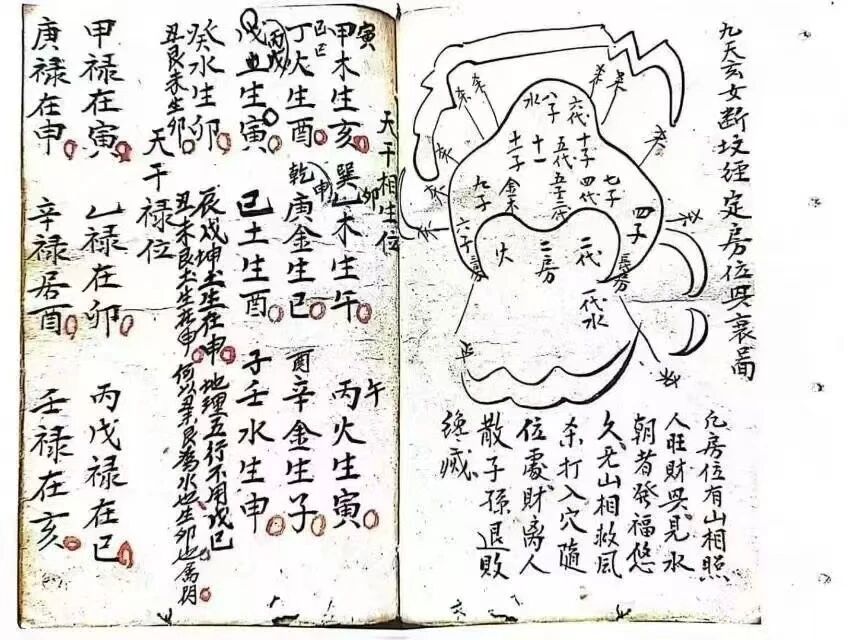 九天玄女断坟经定房位兴衰局
六代
八子
水
十子
十一
十二子
五代
五十三代
四代
七子
四子
九子
金木
六子
長房
火
二房
二代
長房
一代水
凡房位有山相照
人旺財興見水
朝者發福悠
久無山相救風
杀打入穴隨
位處財离人
散子孫退敗
绝灭
天干相生位
寅
甲木生亥
卯
巽乙木生午
午
丙火生寅
己巳
丁火生酉
乾
申
庚金生巳
酉
辛金生子
丙戌
戊土生寅
己土生酉
子
壬水生申
癸水生卯
辰戌坤土生在申地理五行不用戊己
丑艮未生卯
丑未艮土生在申何以丑未艮為水也生卯也為明
天干禄位
甲禄在寅
乙禄在卯
丙戊禄在巳
庚禄在申
辛禄居酉
壬禄在亥